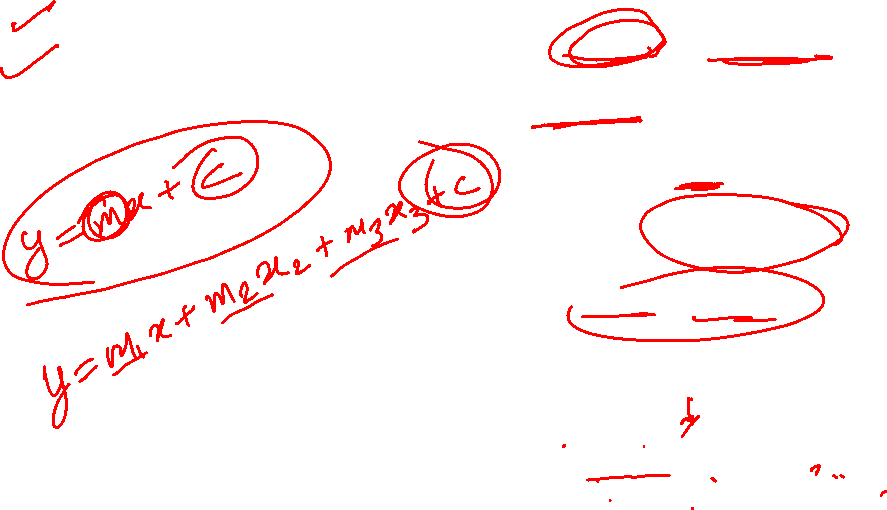 y = mx + c
y = m₁x + m₂x₂ + m₃x₃ + c